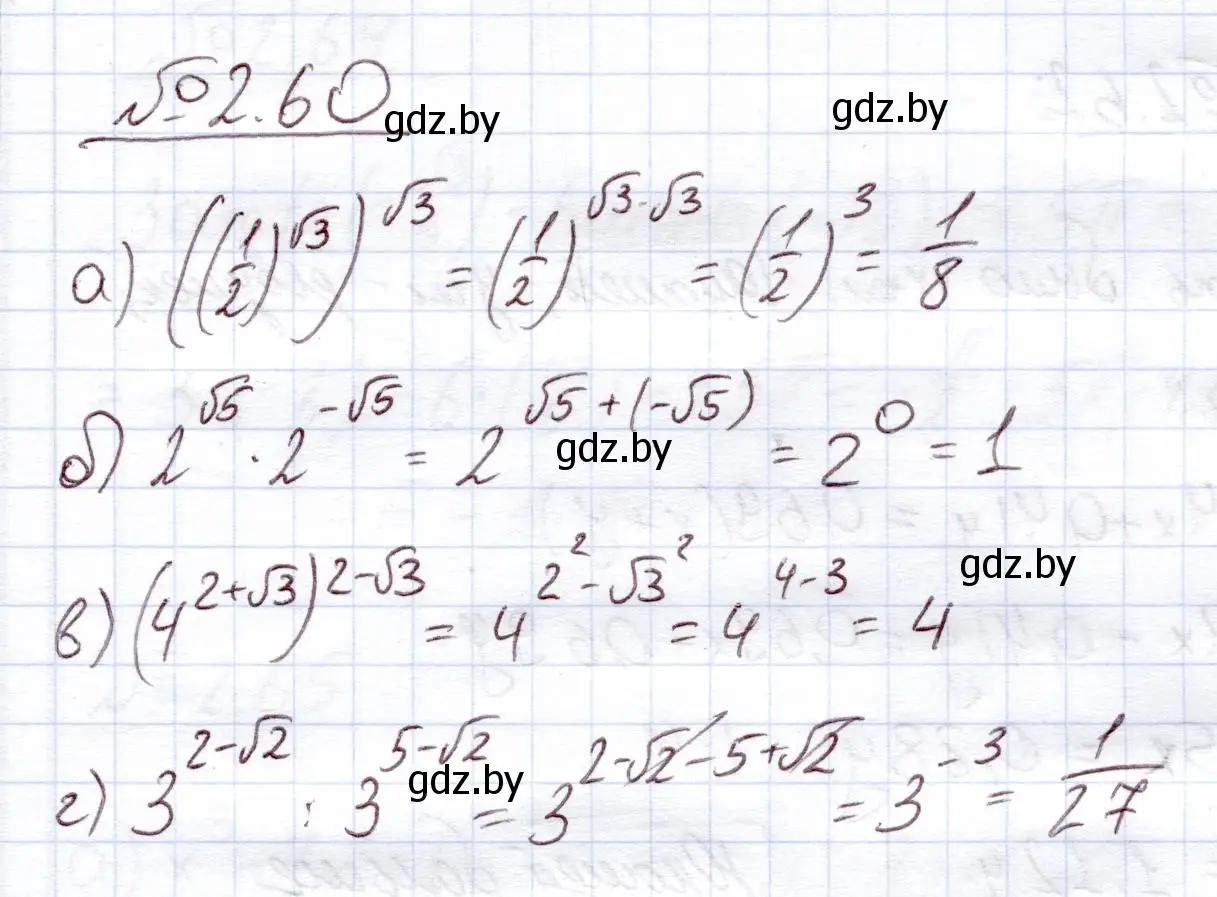 № 2.60
gdz.by gdz.by
а) ((1/2)^√3)^√3 = (1/2)^(√3·√3) = (1/2)^3 = 1/8
б) 2^√5 · 2^(-√5) = 2^(√5+(-√5)) = 2^0 = 1
gdz.by
в) (4^(2+√3))^(2-√3) = 4^(2²-√3²) = 4^(4-3) = 4
gdz.by
г) 3^(2-√2) : 3^(5-√2) = 3^(2-√2-5+√2) = 3^(-3) = 1/27
gdz.by